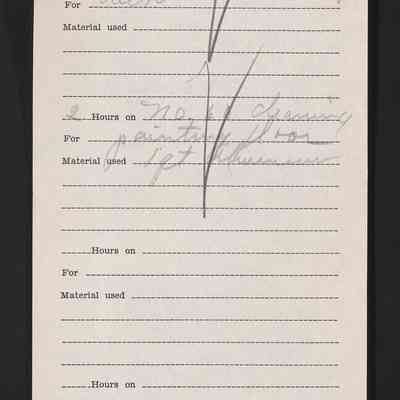 For
Material used
2 Hours on No. cleaning
For painting floor
Material used 1 pt
Hours on
For
Material used
Hours on